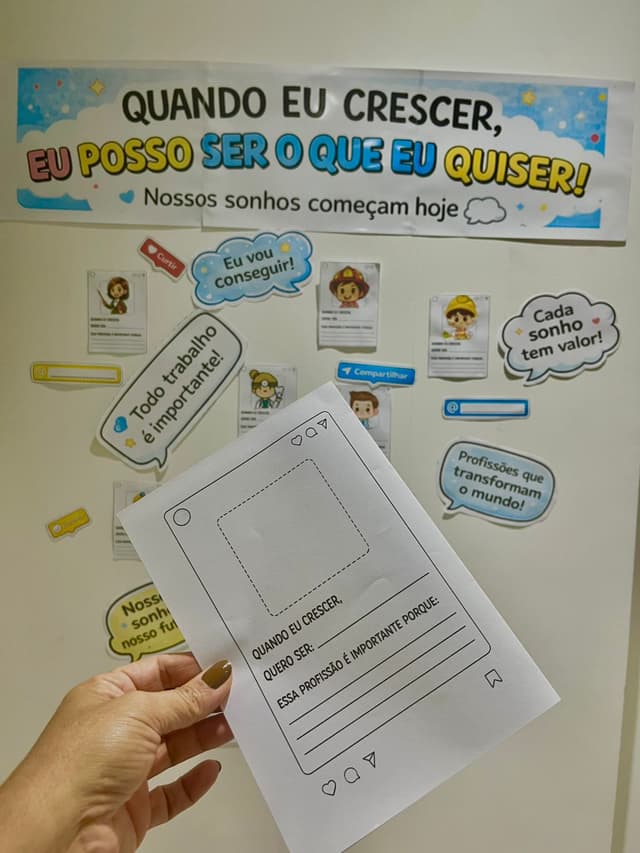 QUANDO EU CRESCER,
EU POSSO SER O QUE EU QUISER!
Nossos sonhos começam hoje
Curtir
Eu vou
conseguir!
Cada
sonho
tem valor!
Todo trabalho
é importante!
Compartilhar
@
Profissões que
transformam
o mundo!
nosso
QUANDO EU CRESCER,
QUERO SER:
ESSA PROFISSÃO É IMPORTANTE PORQUE: